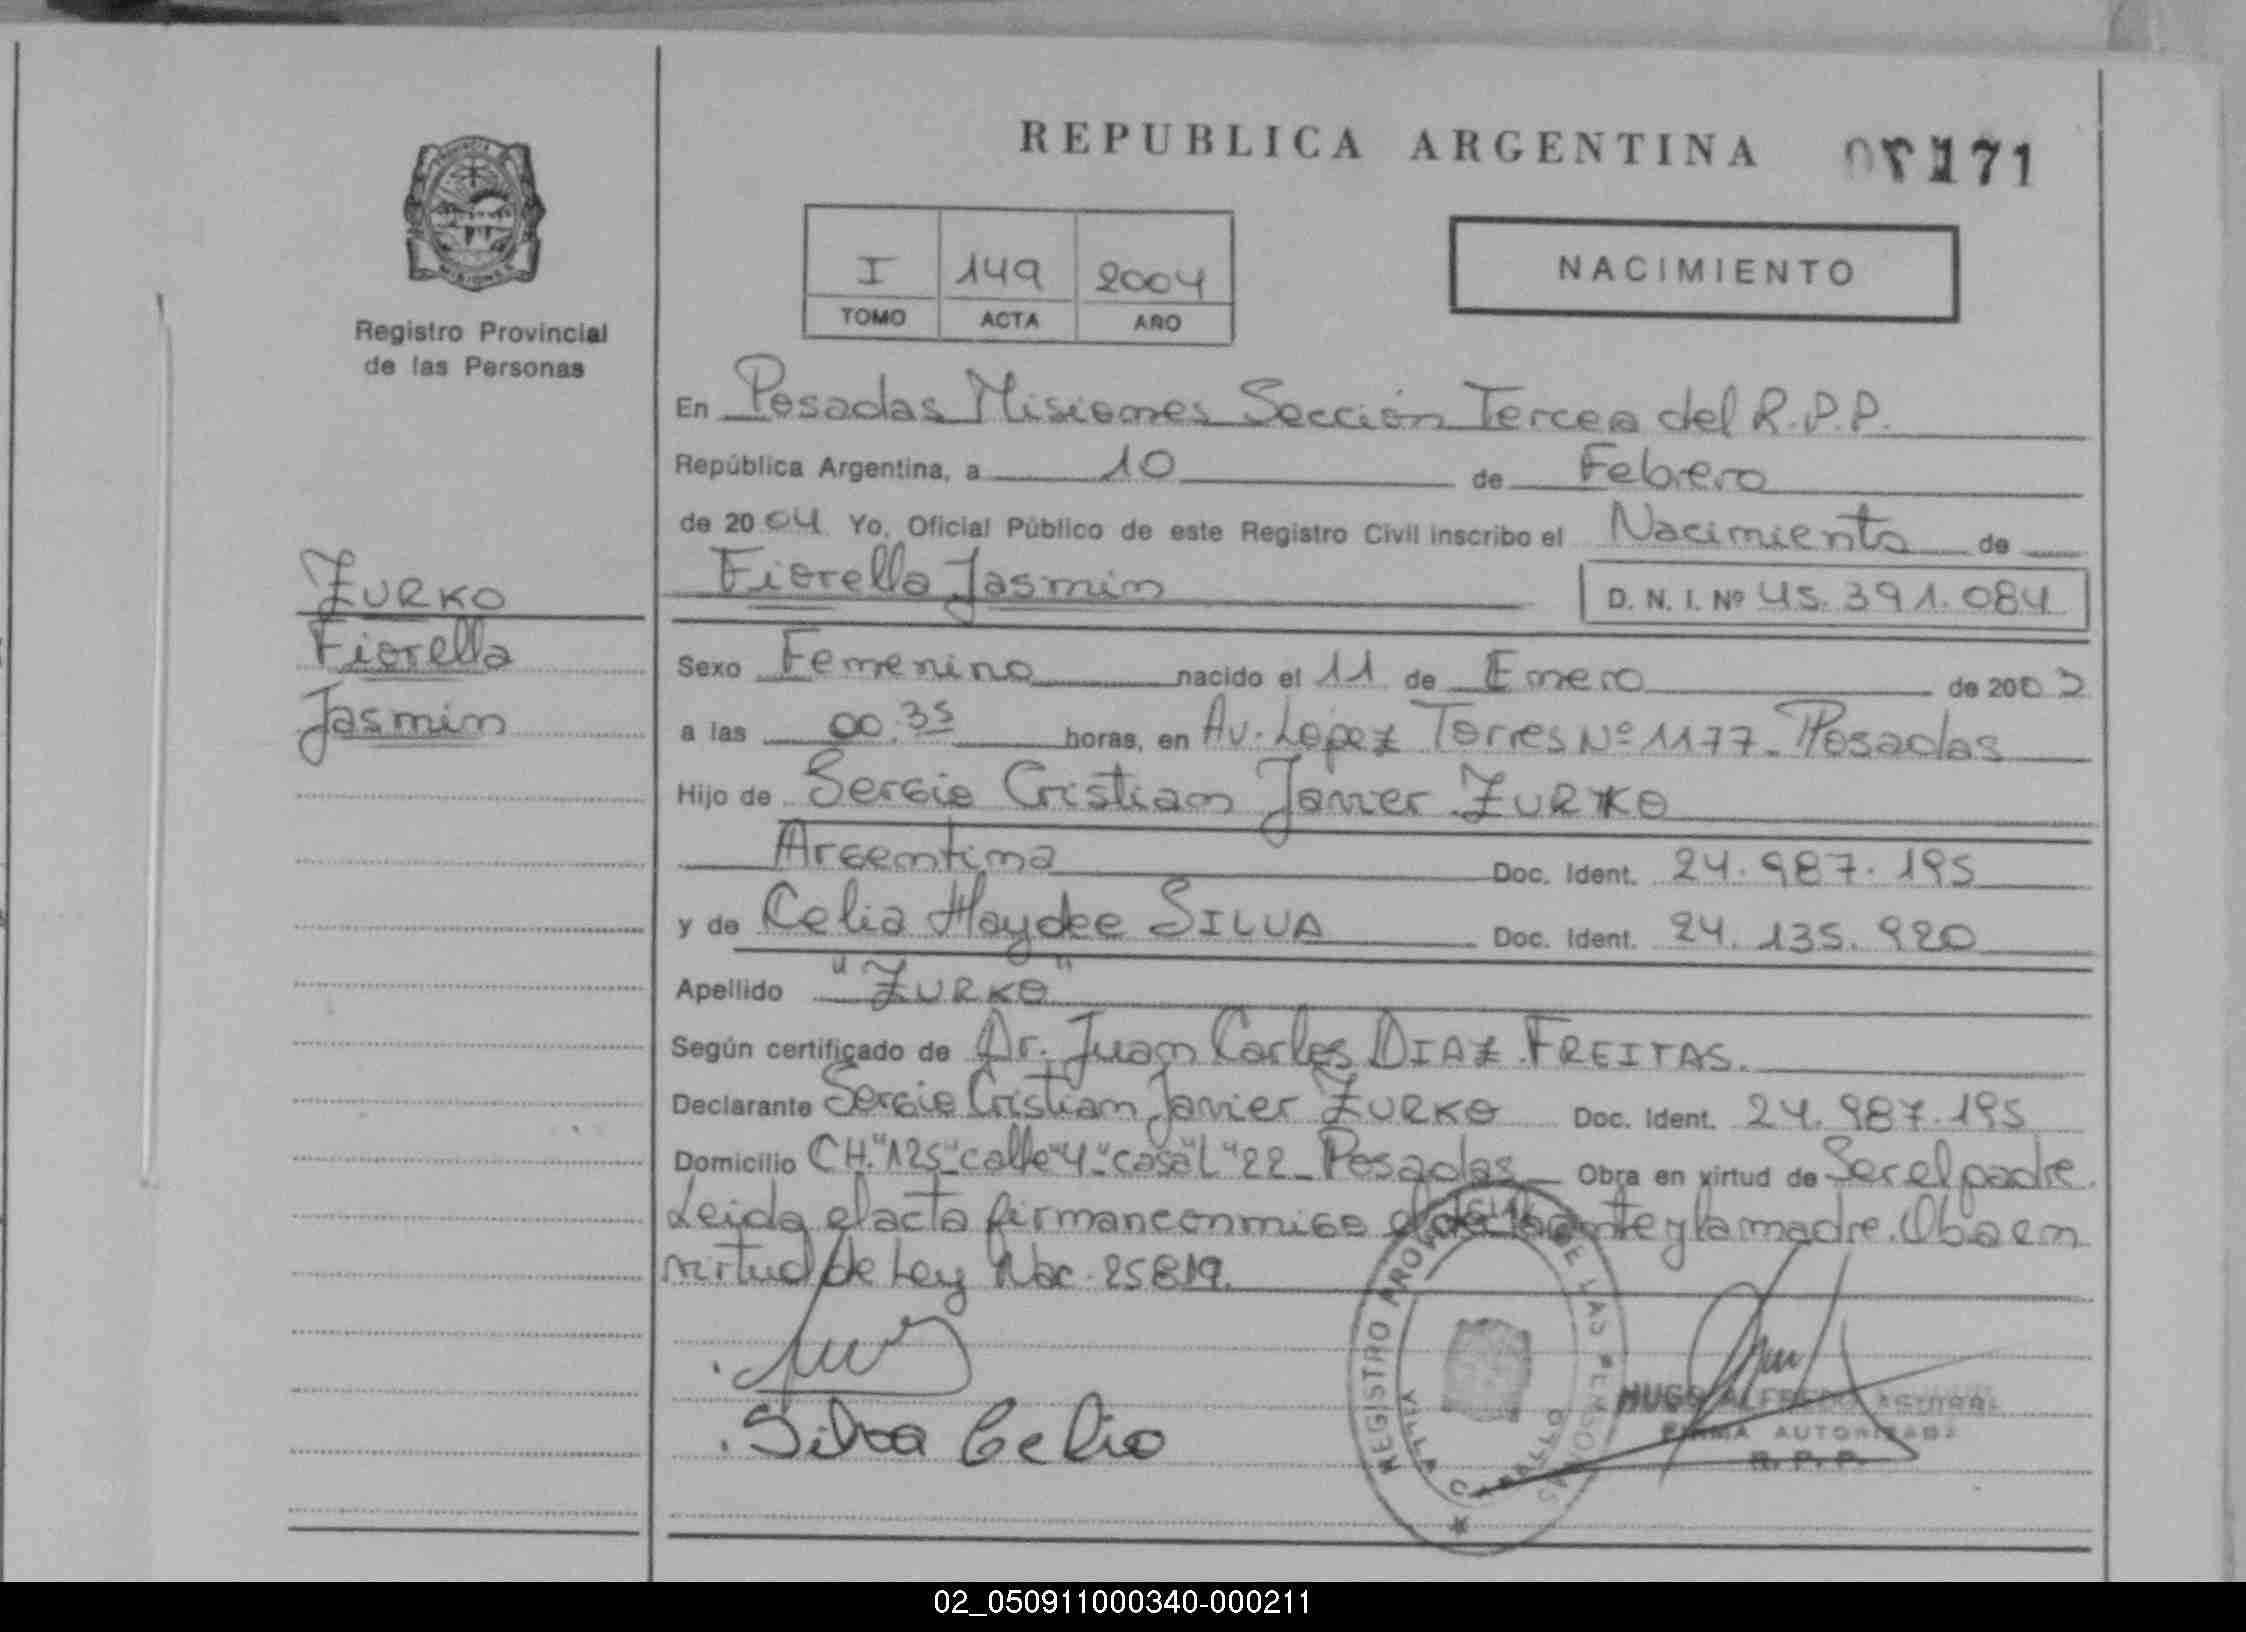 REPUBLICA ARGENTINA
171
I 149 2004
TOMO ACTA AÑO
NACIMIENTO
Registro Provincial
de las Personas
En Posadas Misiones Sección Tercea del R.P.P.
República Argentina, a 10 de Febrero
de 2004 Yo, Oficial Público de este Registro Civil inscribo el Nacimiento de
Fiorella Jasmin D. N. I. Nº 45.391.084
ZURKO
Fiorella
Jasmin
Sexo Femenino nacido el 11 de Enero de 200
a las 00.35 horas, en Av. Lopez Torres Nº 1177- Posadas
Hijo de Sergio Cristian Javier ZURKO
Argentina Doc. Ident. 24.987.195
y de Celia Haydee SILVA Doc. Ident. 24.135.920
Apellido "ZURKO"
Según certificado de Dr. Juan Carlos DIAZ FREITAS.
Declarante Sergio Cristian Javier ZURKO Doc. Ident. 24.987.195
Domicilio CH."125"calle"4"casa"L"22- Posadas Obra en virtud de Ser el padre.
Leida el acta firman conmigo el declarante y la madre. Oba en
virtud de Ley Nac. 25819.
Silva Celia
REGISTRO PROVINCIAL DE LAS PERSONAS
VILLA CABELLO
HUGO ALFREDO
FIRMA AUTORIZADA
R.P.P.
02_050911000340-000211